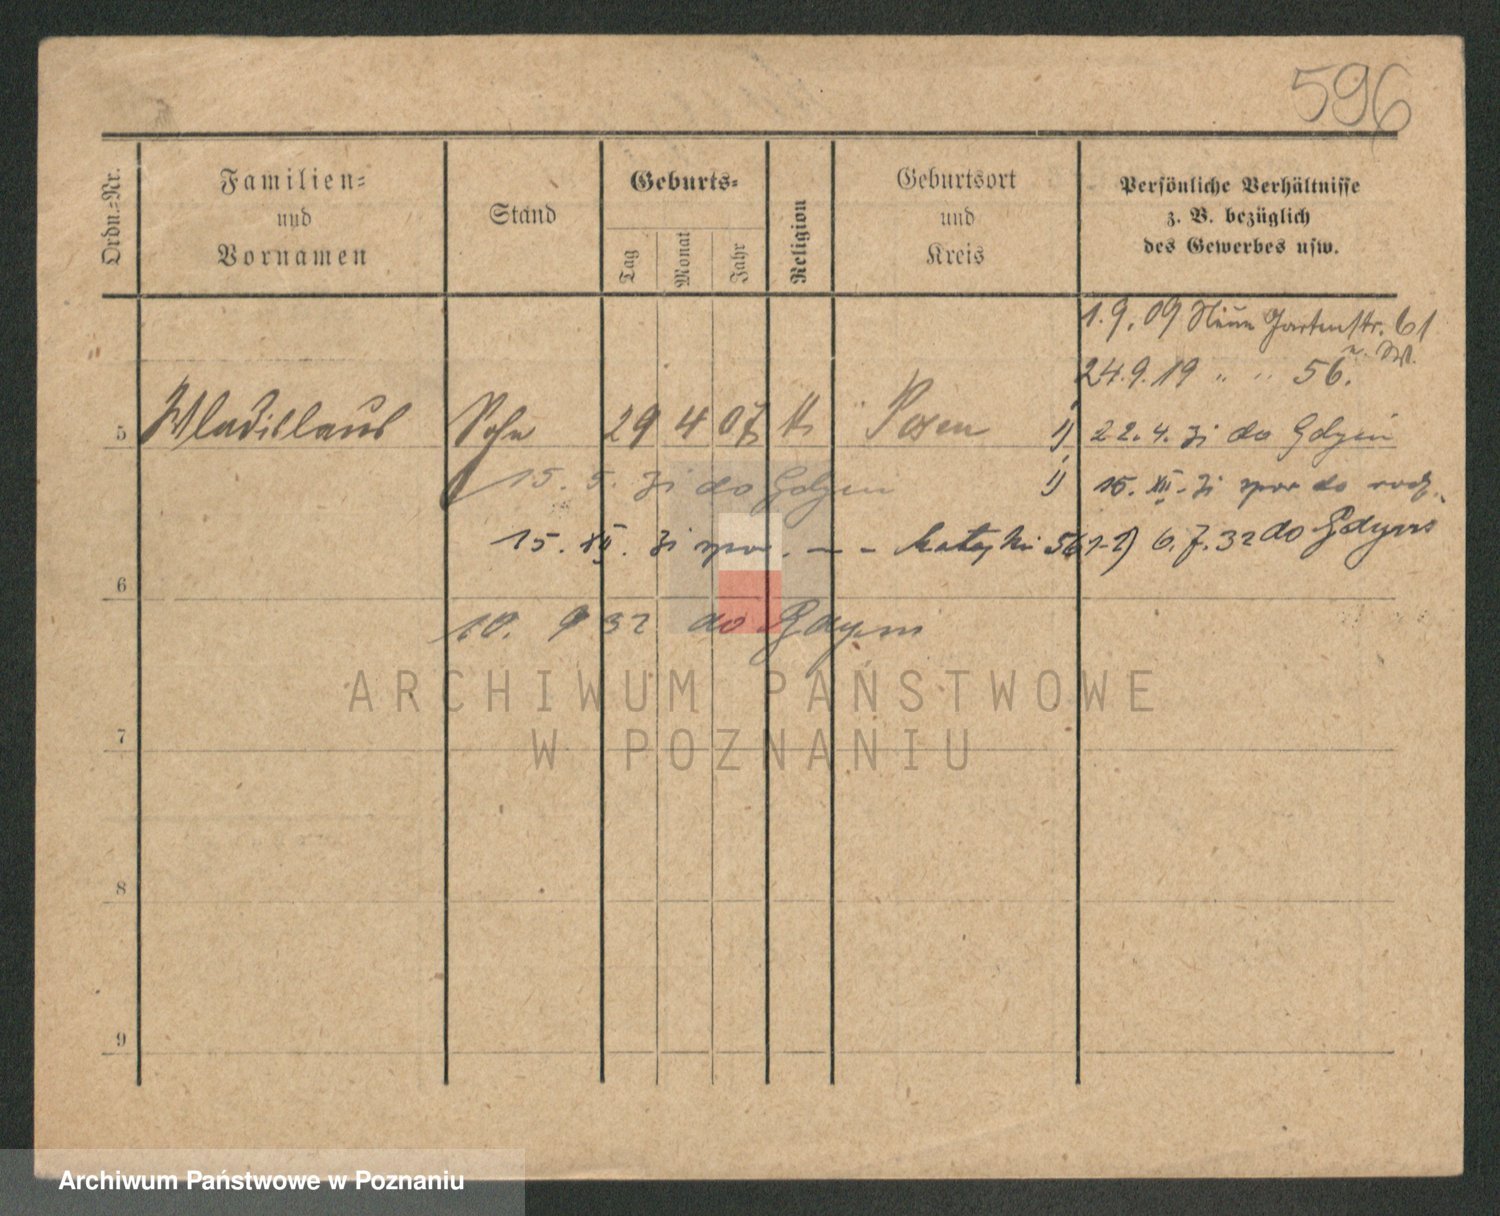 596
Ordn.-Nr.
Familien-
und
Vornamen
Stand
Geburts-
Tag
Monat
Jahr
Religion
Geburtsort
und
Kreis
Persönliche Verhältnisse
z. B. bezüglich
des Gewerbes usw.
1. 9. 09 Gartenstr. 61
24. 9. 19 " " 56.
5 Wladislaus Sohn 29 4 07 k Posen 1) 22. 4. 31 do Gdyni
15. 5. 31 do Gdyni
1) 15. XII. 31 do
15. XII. 31 56
6. 7. 32 do Gdyni
6
10. 9 32 do Gdyni
ARCHIWUM PAŃSTWOWE
W POZNANIU
7
8
9
Archiwum Państwowe w Poznaniu